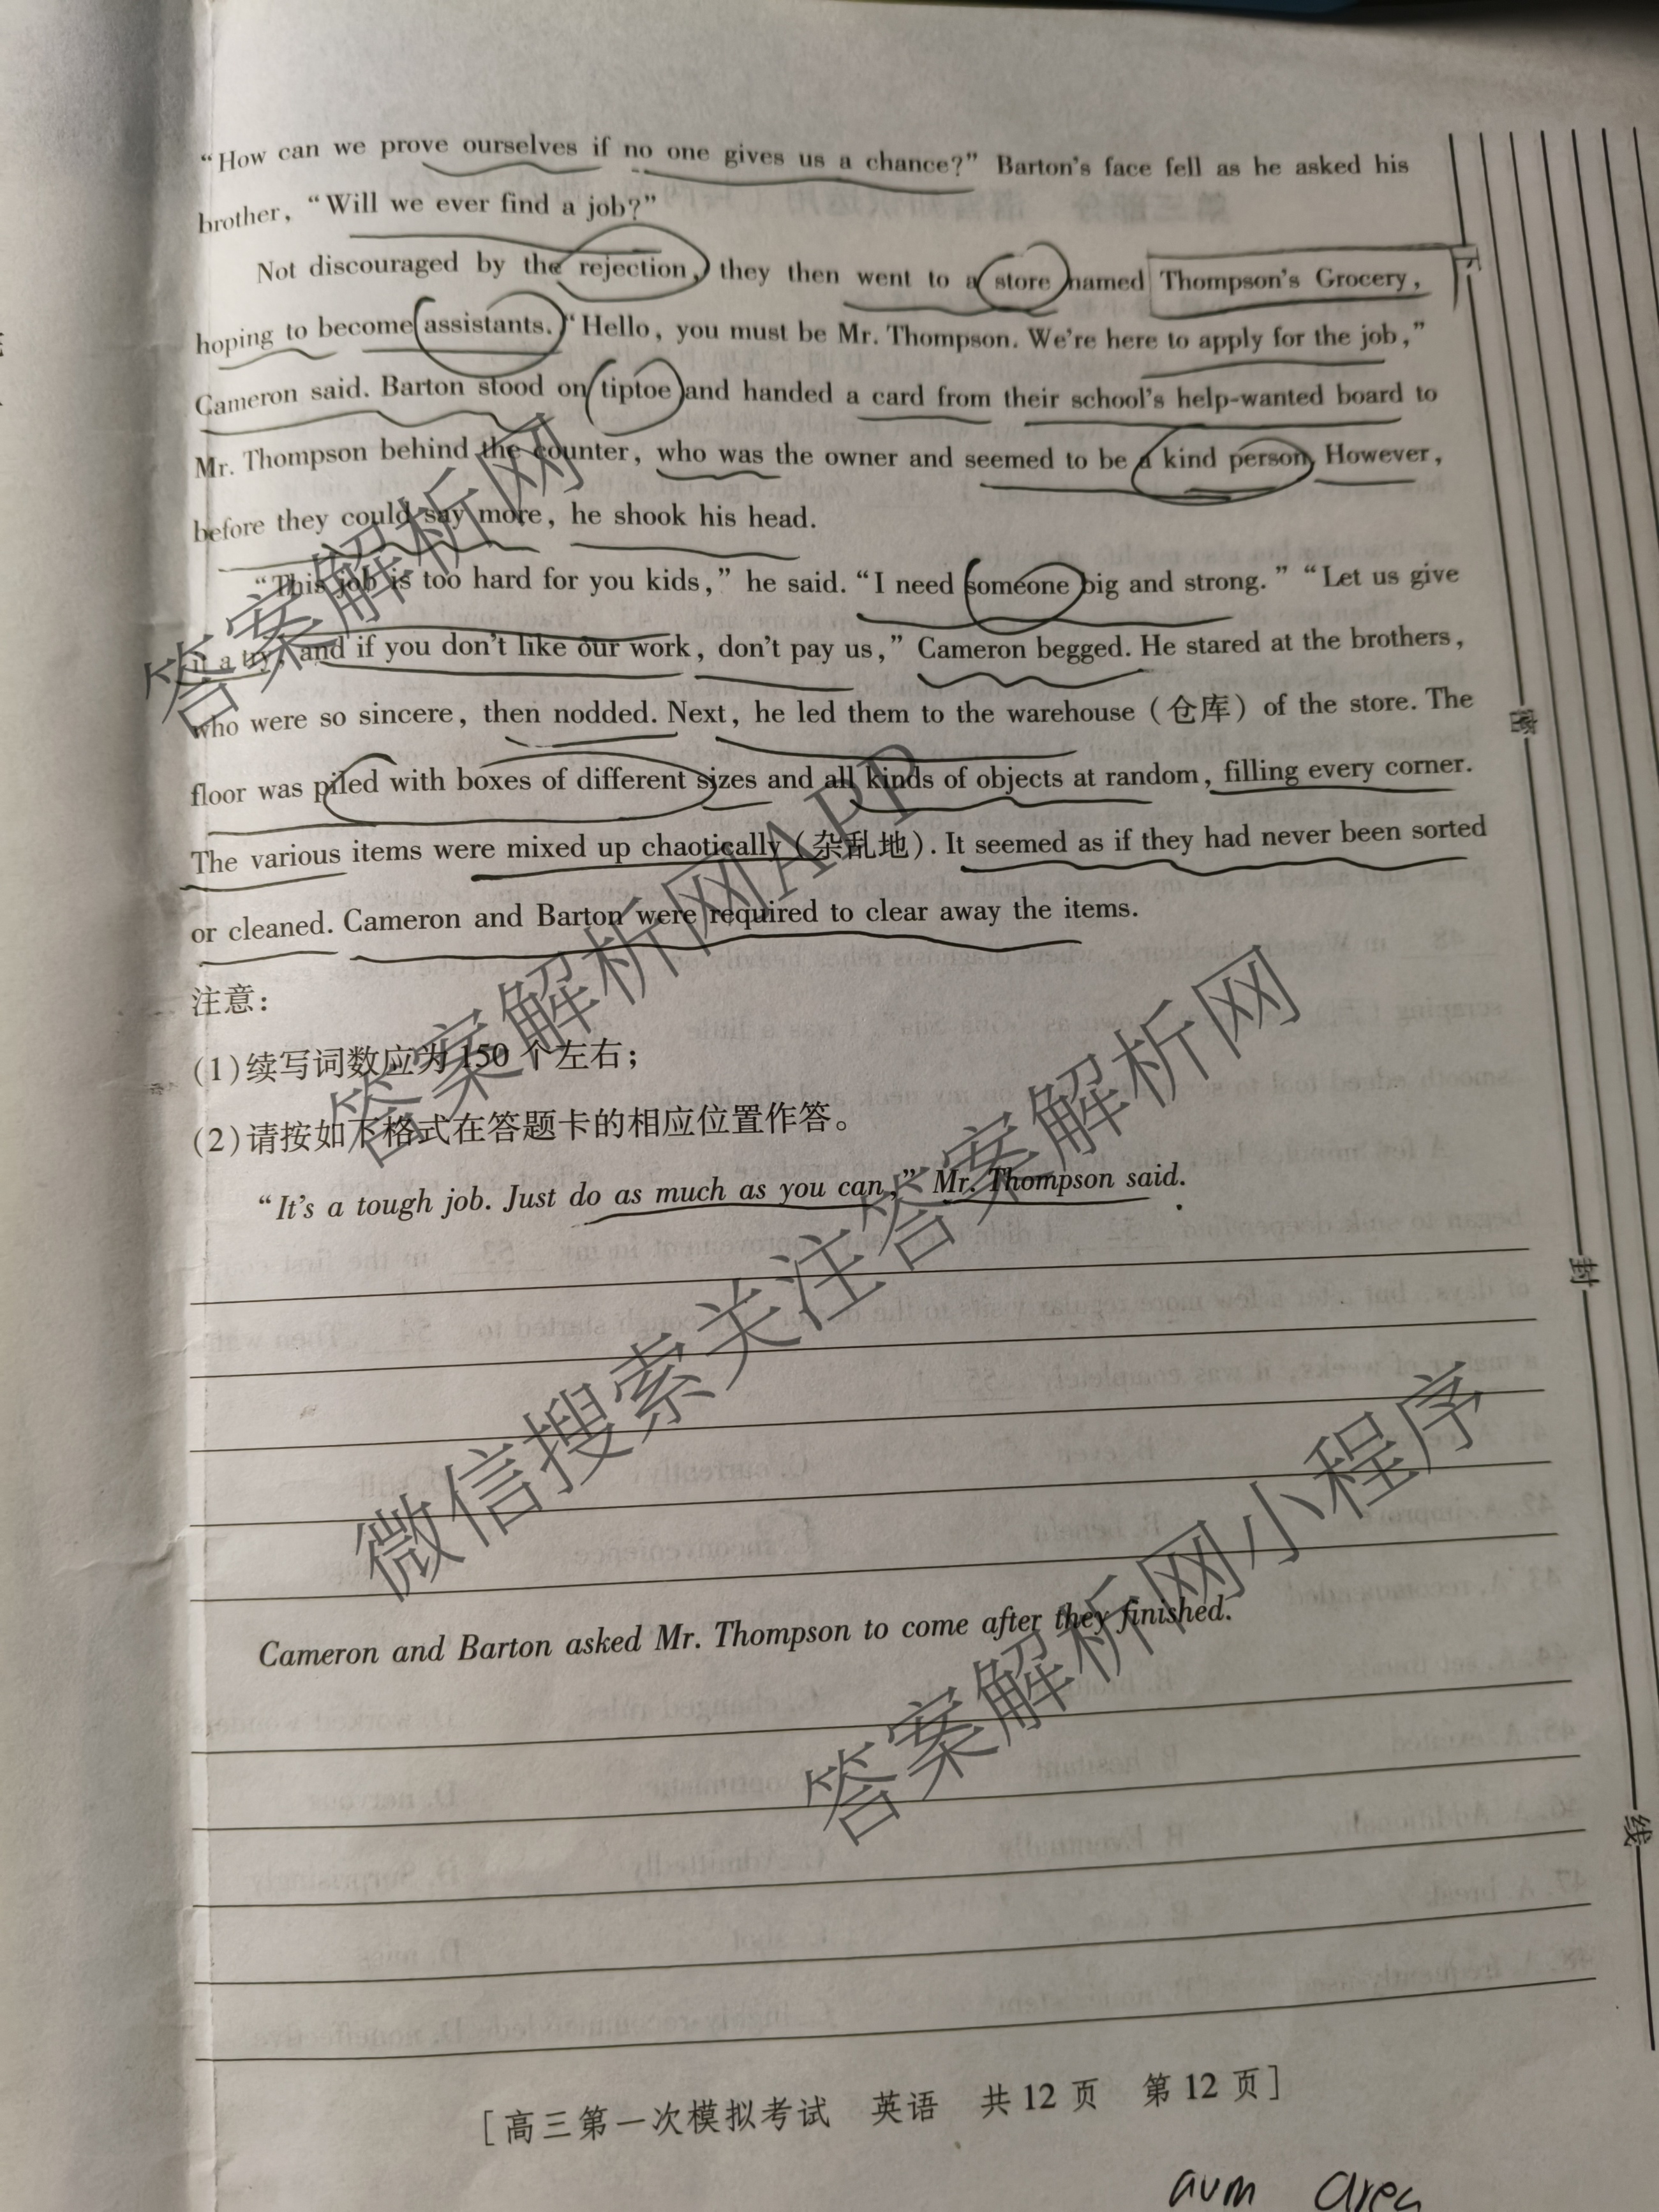 “How can we prove ourselves if no one gives us a chance?” Barton’s face fell as he asked his
brother, “Will we ever find a job?”
Not discouraged by the rejection, they then went to a store named Thompson’s Grocery,
hoping to become assistants. “Hello, you must be Mr. Thompson. We’re here to apply for the job,”
Cameron said. Barton stood on tiptoe and handed a card from their school’s help-wanted board to
Mr. Thompson behind the counter, who was the owner and seemed to be a kind person. However,
before they could say more, he shook his head.
“This job is too hard for you kids,” he said. “I need someone big and strong.” “Let us give
it a try, and if you don’t like our work, don’t pay us,” Cameron begged. He stared at the brothers,
who were so sincere, then nodded. Next, he led them to the warehouse (仓库) of the store. The
floor was piled with boxes of different sizes and all kinds of objects at random, filling every corner.
The various items were mixed up chaotically (杂乱地). It seemed as if they had never been sorted
or cleaned. Cameron and Barton were required to clear away the items.
注意:
(1)续写词数应为 150 个左右;
(2)请按如下格式在答题卡的相应位置作答。
“It’s a tough job. Just do as much as you can,” Mr. Thompson said.
Cameron and Barton asked Mr. Thompson to come after they finished.
[高三第一次模拟考试 英语 共 12 页 第 12 页]
密
封
线
答案解析网
答案解析网APP
微信搜索关注答案解析网
答案解析网小程序